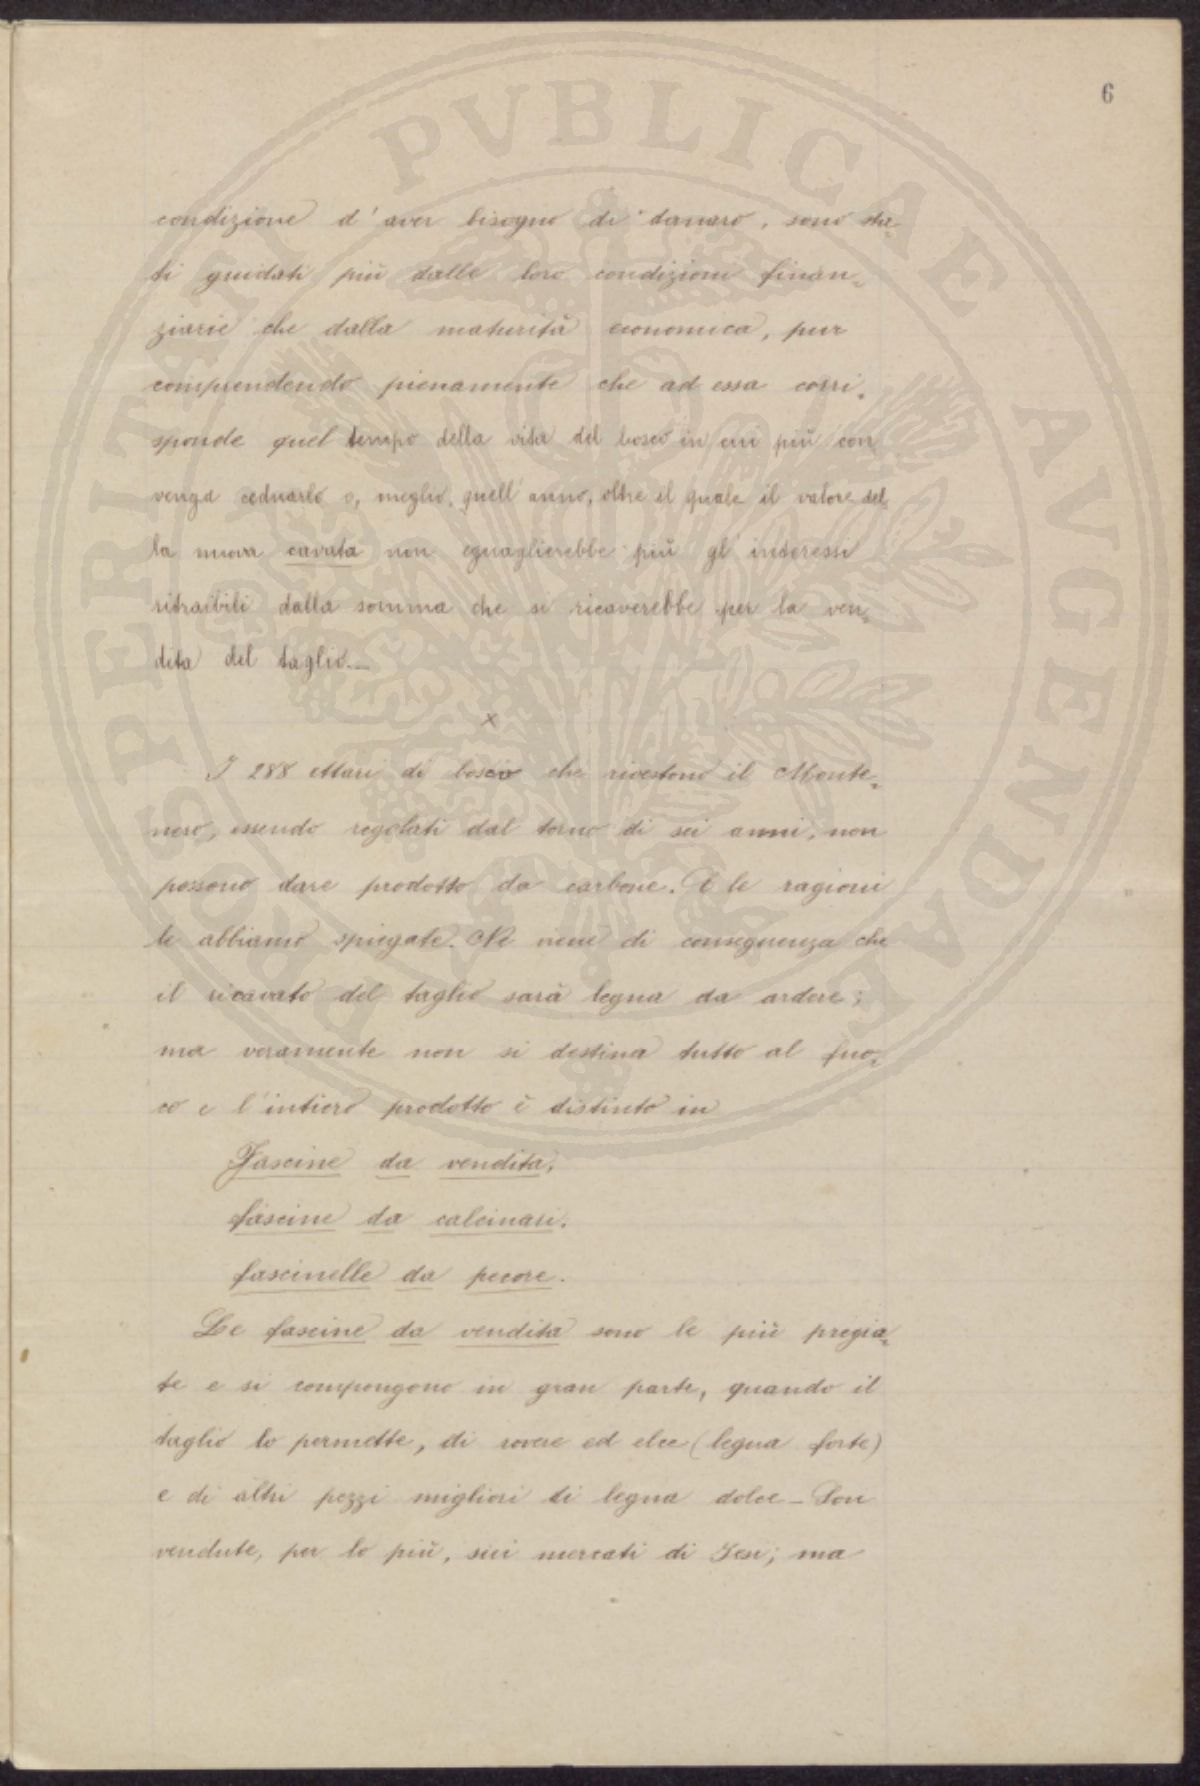 6
condizione d'aver bisogno di danaro, sono sta-
ti guidati più dalle loro condizioni finan-
ziarie che dalla maturità economica, pur
comprendendo pienamente che ad essa corri-
sponde quel tempo della vita del bosco in cui più con
venga ceduarlo o, meglio, quell'anno, oltre il quale il valore del-
la nuova cavata non eguaglierebbe più gl'interessi
ritraibili dalla somma che si ricaverebbe per la ven-
dita del taglio.—
x
I 288 ettari di bosco che rivestono il Monte-
nero, essendo regolati dal turno di sei anni, non
possono dare prodotto da carbone. E le ragioni
le abbiamo spiegate. Ne viene di conseguenza che
il ricavato del taglio sarà legna da ardere;
ma veramente non si destina tutto al fuo-
co e l'intiero prodotto è distinto in
Fascine da vendita,
fascine da calcinari.
fascinelle da pecore.
Le fascine da vendita sono le più pregia-
te e si compongono in gran parte, quando il
taglio lo permette, di rovere ed elce (legna forte)
e di altri pezzi migliori di legna dolce — Son
vendute, per lo più, sui mercati di Jesi; ma
PROSPERITATI PVBLICAE AVGENDAE